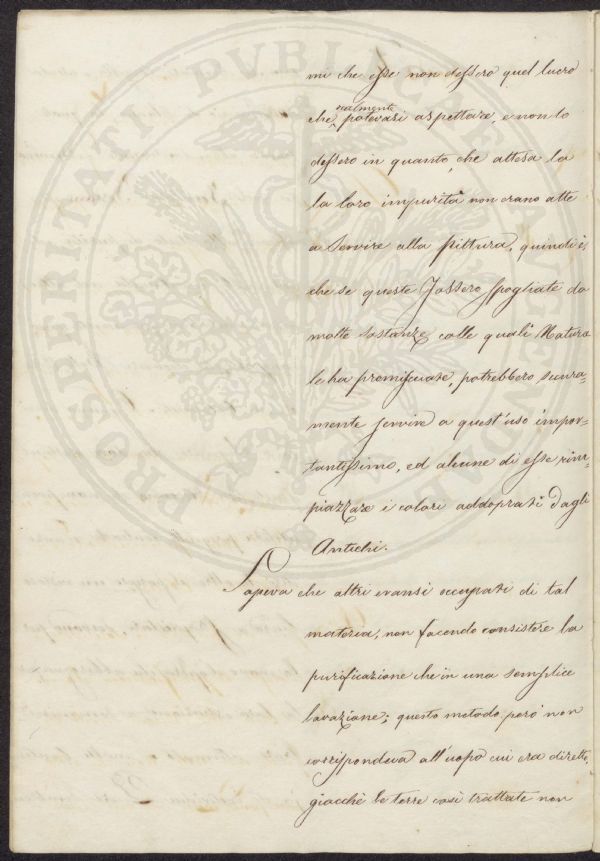 PROSPERITATI PVBLICAE AVGENDAE
mi che esse non dessero quel lucro
realmente
che potevasi aspettare, e non lo
dessero in quanto, che attesa la
la loro impurità non erano atte
a servire alla pittura, quindi è,
che se queste fossero spogliate da
molte sostanze colle quali Natura
le ha promiscuate, potrebbero sicura-
mente servire a quest'uso impor-
tantissimo, ed alcune di esse rim-
piazzare i colori addoprati dagli
Antichi.
Sapeva che altri eransi occupati di tal
materia, non facendo consistere la
purificazione che in una semplice
lavazione; questo metodo però non
corrispondeva all'uopo cui era diretto,
giacchè le terre così trattate non